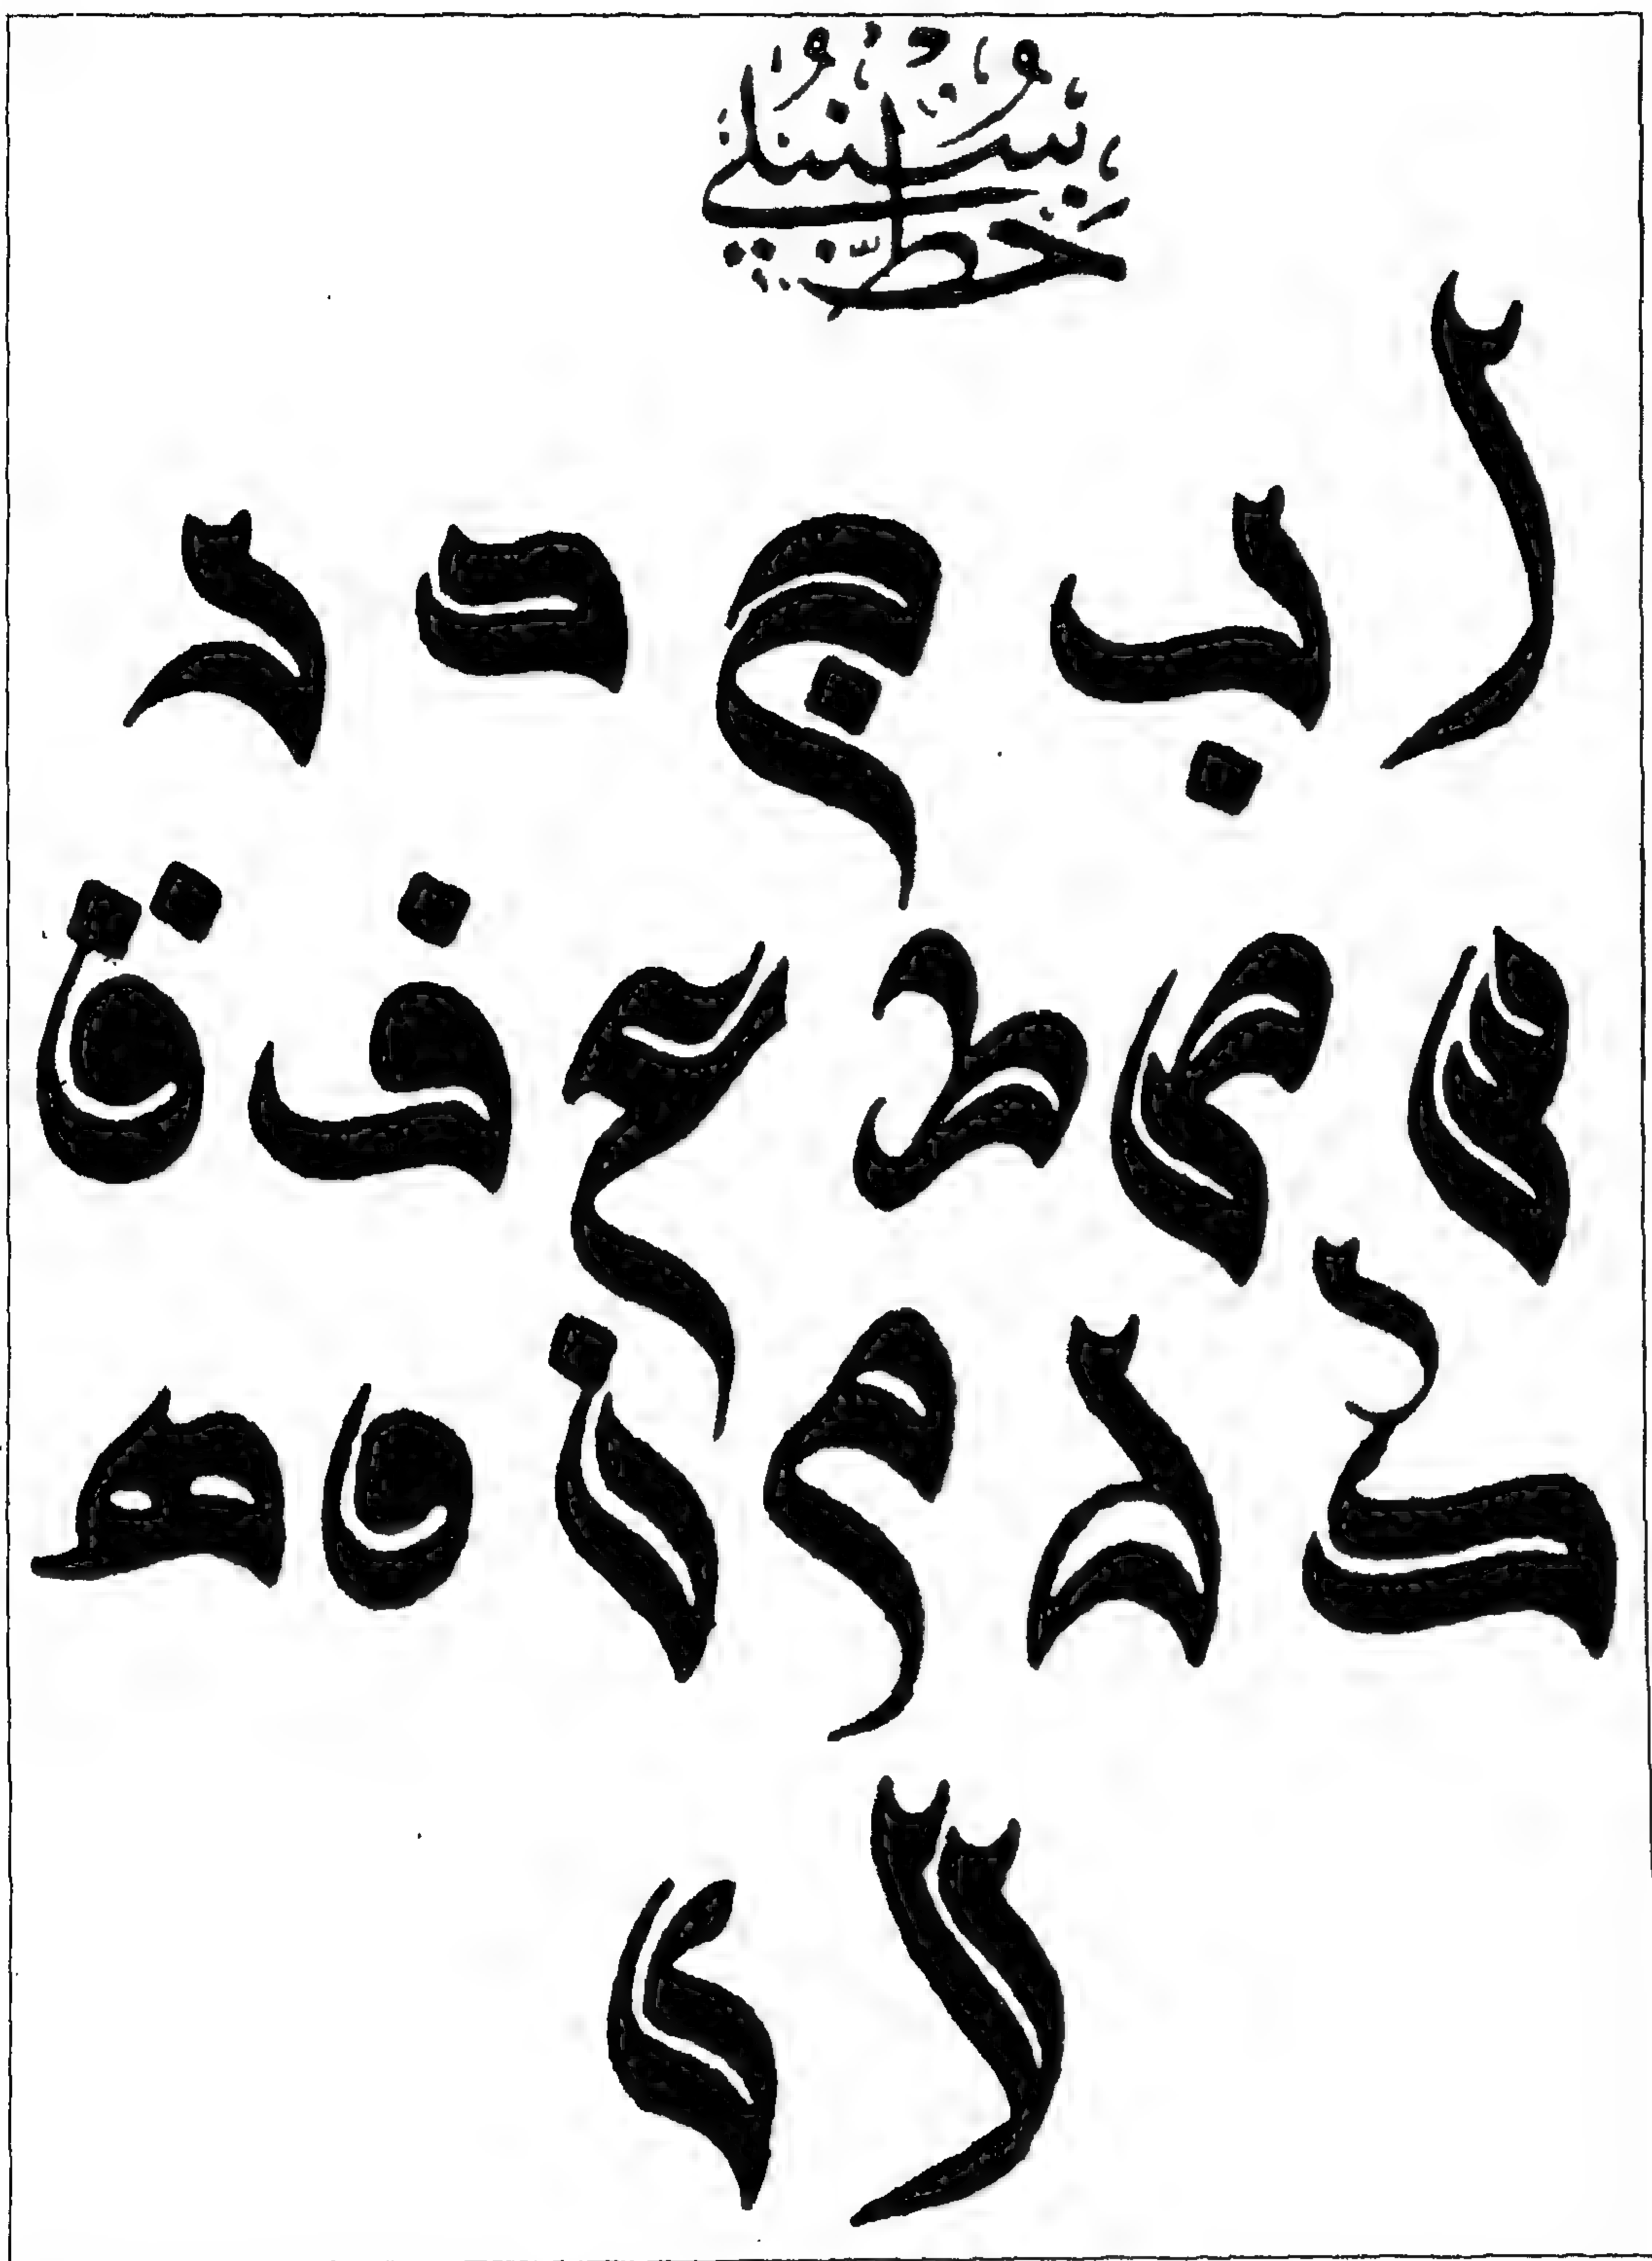 خط سنبلي
ا ب ج د ر
س ص ط ع ف ق
ك ل م ن و ه
لا ى